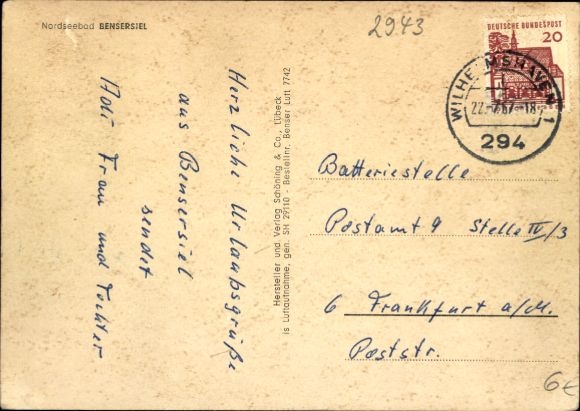 Nordseebad BENSERSIEL
2943
DEUTSCHE BUNDESPOST
20
WILHELMSHAVEN 1
22.-7.67.-18
294
Herzliche Urlaubsgrüße
aus Bensersiel
sendet
Adi Frau und Tochter
Hersteller und Verlag Schöning & Co., Lübeck
is Luftaufnahme, gen. SH 29110 - Bestellnr. Benser Luft 7742
Batteriestelle
Postamt 9 Stelle IV/3
6 Frankfurt a/M.
Poststr.
6€